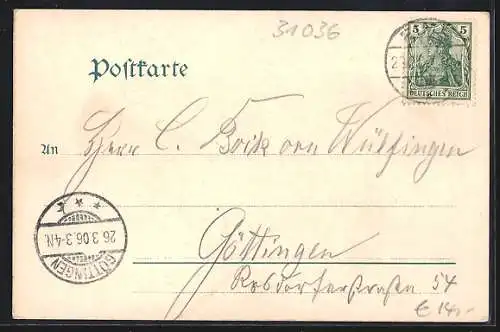 31036
5 5
DEUTSCHES REICH
Postkarte
An Herrn C. Boik von Wülfingen
26.3.06.3-4N.
GÖTTINGEN
Göttingen
Rosdorferstraße 54
€ 14,-